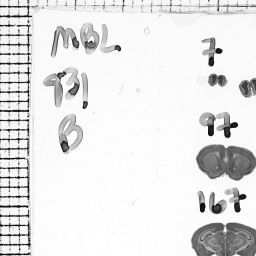 MBL
931
B
7
97
167